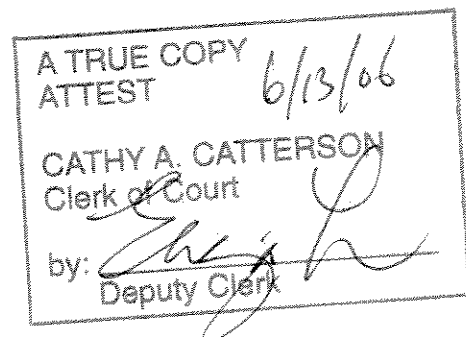 A TRUE COPY
ATTEST 6/13/06
CATHY A. CATTERSON
Clerk of Court
by:
Deputy Clerk